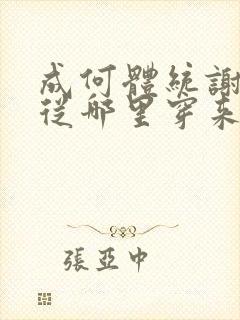 成何體統謝
從哪里穿來
張亞中